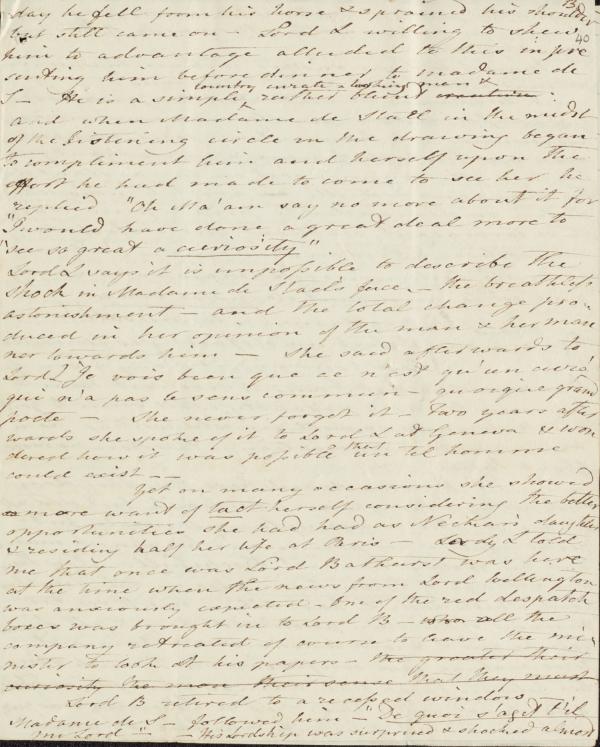 day he fell from his horse & sprained his shoulder
40
but still came on – Lord L willing to shew
him to advantage alluded to this in pre
senting him before dinner to Madame de
country curate – looking man &
S – He is a simple, rather blunt creature
and when Madame de Stael in the midst
of the listening circle in the drawing began
to compliment him and herself upon the
effort he had made to come to see her he
replied "Oh Ma'am say no more about it for
"I would have done a great deal more to
"see so great a curiosity"
Lord L says it is impossible to describe the
shock in Madame de Stael's face – the breathless
astonishment – and the total change pro-
duced in her opinion of the man & her man
ner towards him – She said afterwards to
Lord L Je vois been que ce n'est qu'un curé
qui n'a pas le sens commun – quoique grand
poete – She never forgot it – Two years after
wards she spoke of it to Lord L at Geneva & won
dered how it was possible that un tel homme
could exist –
Yet on many occasions she showed
a more want of tact herself considering the better
opportunities she had had as Neckar's daughter
& residing half her life at Paris – Lady L told
me that once was Lord Bathurst was here
at the time when the news from Lord Wellington
was anxiously expected – One of the red despatch
boxes was brought in to Lord B – all the
company retreated of course to leave the mi-
nister to look at his papers – the greater their
curiosity the more their sense that they must
Lord B retired to a recessed window
Madame de S – followed him – "De quoi s'agit t'il
Mi Lord" – His Lordship was surprised & shocked almost